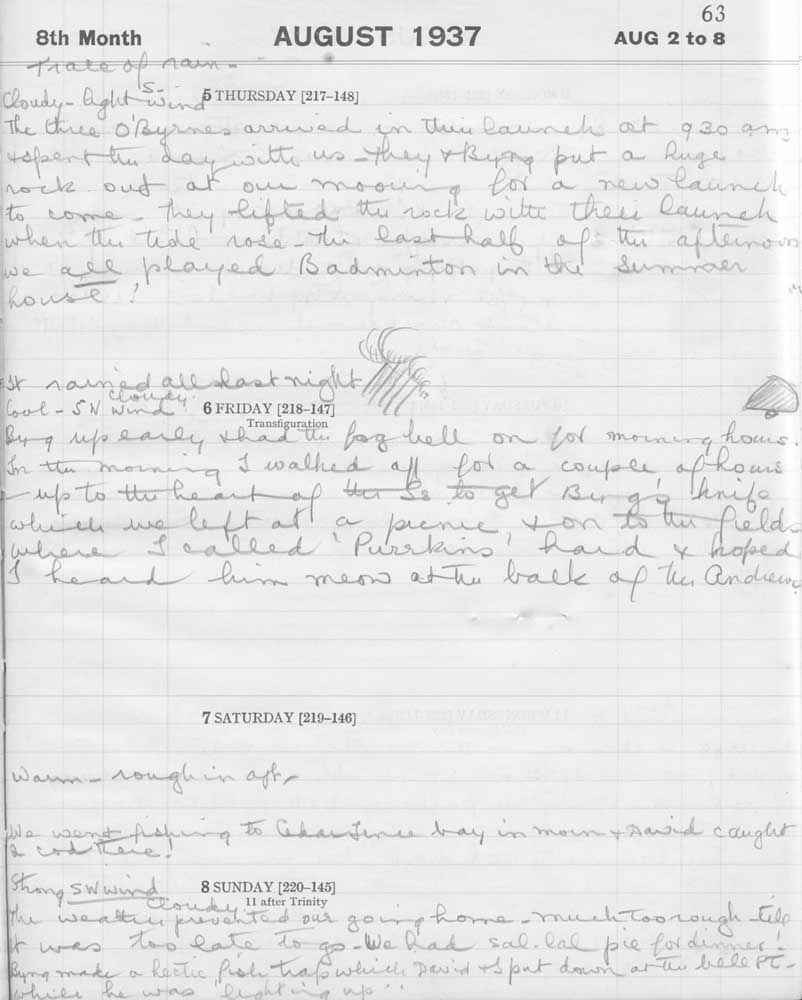 63
8th Month AUGUST 1937 AUG 2 to 8
Trace of rain -
Cloudy - light S- wind 5 THURSDAY [217–148]
The three O'Byrnes arrived in their launch at 930 am
& spent the day with us - They & Byng put a huge
rock out at our mooring for a new launch
to come - They lifted the rock with their launch
when the tide rose - The last half of the afternoon
we all played Badminton in the Summer
house!
It rained all last night
Cool - SW wind cloudy. 6 FRIDAY [218–147]
Transfiguration
Byng up early & had the fog bell on for morning hours.
In the morning I walked off for a couple of hours
- up to the heart of the to get Byng's knife
which we left at a picnic & on to the fields
where I called 'Purrkins' hard & hoped
I heard him meow at the back of the Andrews
7 SATURDAY [219–146]
Warm - rough in aft -
We went fishing to Cedar Fence bay in morn & David caught
2 cod there!
Strong SW wind 8 SUNDAY [220–145]
Cloudy 11 after Trinity
The weather prevented our going home - much too rough - till
it was too late to go - We had sal-lal pie for dinner!
Byng made a hectic fish trap which David & I put down at the bell Pt -
while he was "lighting up"